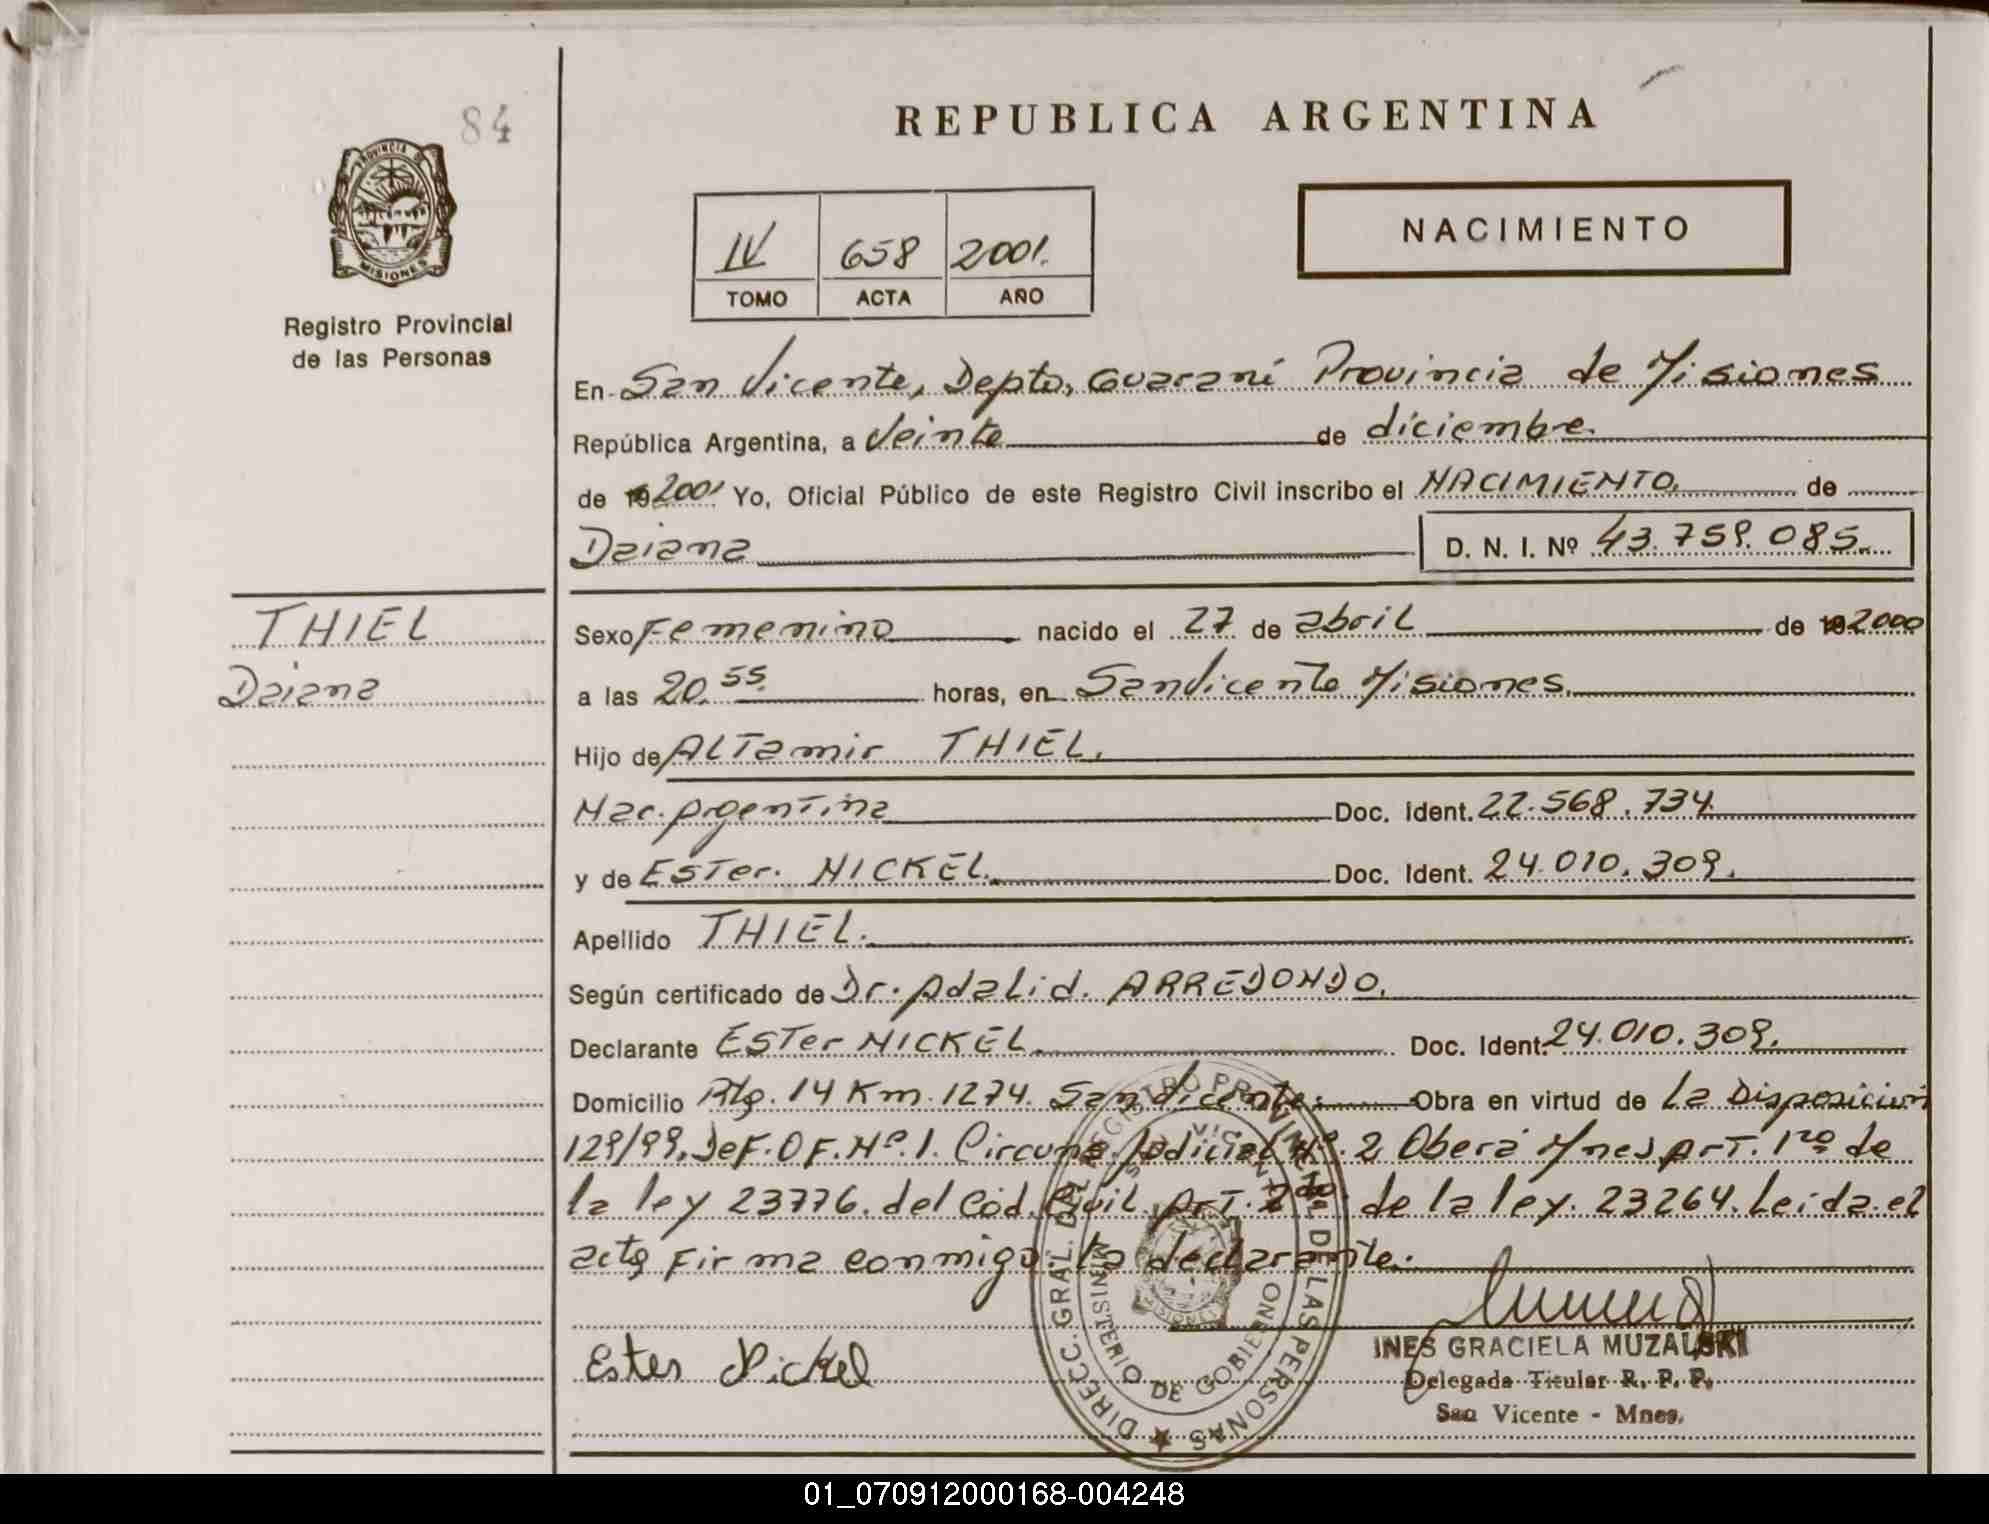 84
REPUBLICA ARGENTINA
PROVINCIA DE
MISIONES
Registro Provincial
de las Personas
IV 658 2001.
TOMO ACTA AÑO
NACIMIENTO
En San Vicente, Depto, Guaraní Provincia de Misiones
República Argentina, a Veinte de diciembre.
de 192001 Yo, Oficial Público de este Registro Civil inscribo el NACIMIENTO. de
Daiana D. N. I. Nº 43.759.085.
THIEL
Daiana
Sexo Femenino nacido el 27 de abril de 2000
a las 20.55 horas, en San Vicente Misiones.
Hijo de ALTamir THIEL.
Nac. Argentina Doc. Ident. 22.568.734.
y de ESTer. NICKEL. Doc. Ident. 24.010.309.
Apellido THIEL.
Según certificado de Dr. Adalid. ARREDONDO.
Declarante ESTer NICKEL. Doc. Ident. 24.010.309.
Domicilio Rta. 14 Km. 1274. San Vicente. Obra en virtud de La Disposición
129/99. Def. OF. Nº. 1. Circuns. Judicial Nº. 2 Oberá Mnes. ArT. 1ro de
la ley 23776. del Cód. Civil. ArT. 2do. de la ley. 23264. Leída el
acta firma conmigo la declarante.
Ester Nickel
DIRECC. GRAL. DEL REGISTRO PROVINCIAL DE LAS PERSONAS
MINISTERIO DE GOBIERNO
INES GRACIELA MUZALSKI
Delegada Titular R. P. P.
San Vicente - Mnes.
01_070912000168-004248